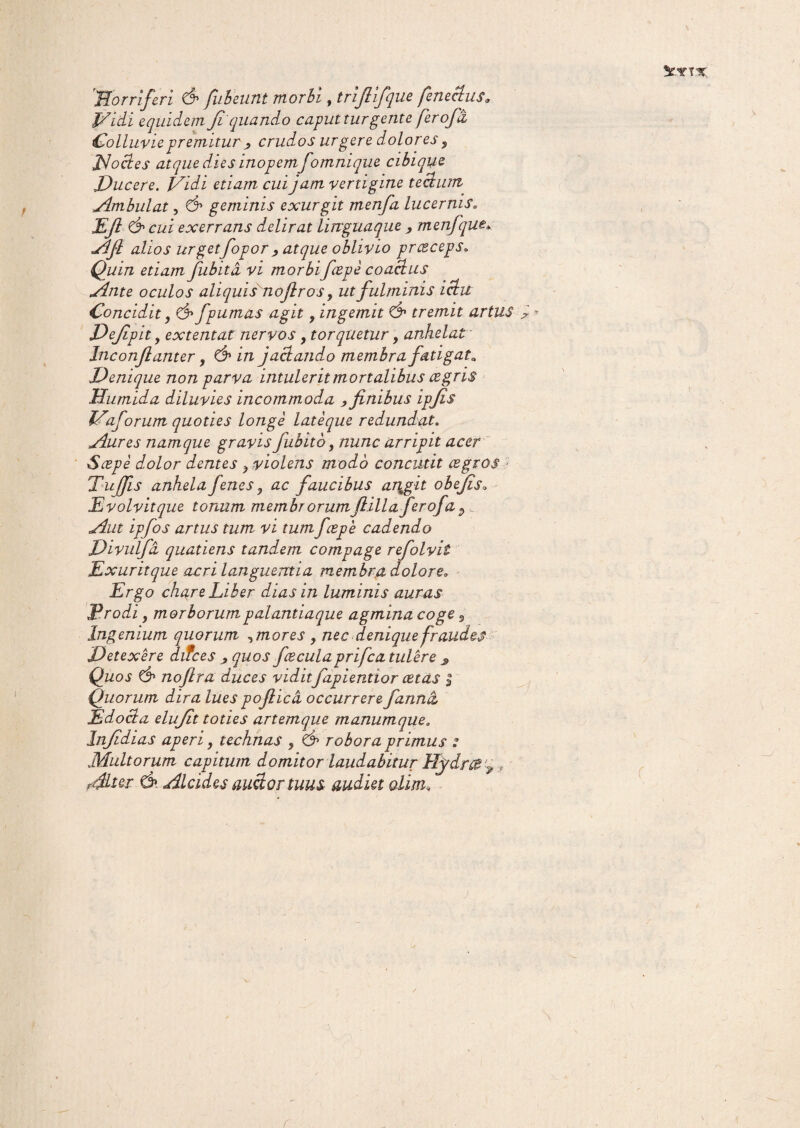 xxix
Horriferi & ſubeunt morbi, triſtiſque ſenectus.
Vidi equidem ſi quando caput turgente ſeroſâ
Colluvie premitur, crudos urgere dolores,
Noctes atque dies inopem ſomnique cibique
Ducere. Vidi etiam cui jam vertigine tectum
Ambulat, & geminis exurgit menſa lucernis.
Eſt & cui exerrans delirat linguaque, menſque.
Aſt alios urget ſopor, atque oblivio præceps.
Quin etiam ſubitâ vi morbi ſæpè coactus
Ante oculos aliquis noſtros, ut fulminis ictu
Concidit, & ſpumas agit, ingemit & tremit artus;
Deſipit, extentat nervos, torquetur, anhelat
Inconſtanter, & in jactando membra fatigat.
Denique non parva intulerit mortalibus ægris
Humida diluvies incommoda, ſinibus ipſis
Vaſorum quoties longè latèque redundat.
Aures namque gravis ſubitò, nunc arripit acer
Sæpè dolor dentes, violens modò concutit ægros
Tuſſis anhela ſenes, ac faucibus angit obeſis.
Evolvitque tonum membrorum ſtilla ſeroſa,
Aut ipſos artus tum vi tum ſæpè cadendo
Divulſâ quatiens tandem compage reſolvit
Exuritque acri languentia membra dolore.
Ergo chare Liber dias in luminis auras
Prodi, morborum palantiaque agmina coge,
Ingenium quorum, mores, nec denique fraudes
Detexêre duces, quos ſæcula priſca tulêre,
Quos & noſtra duces vidit ſapientior ætas;
Quorum dira lues poſticâ occurrere ſannâ
Edocta eluſit toties artemque manumque.
Inſidias aperi, technas, & robora primus:
Multorum capitum domitor laudabitur Hydræ,
Alter & Alcides auctor tuus audiet olim.